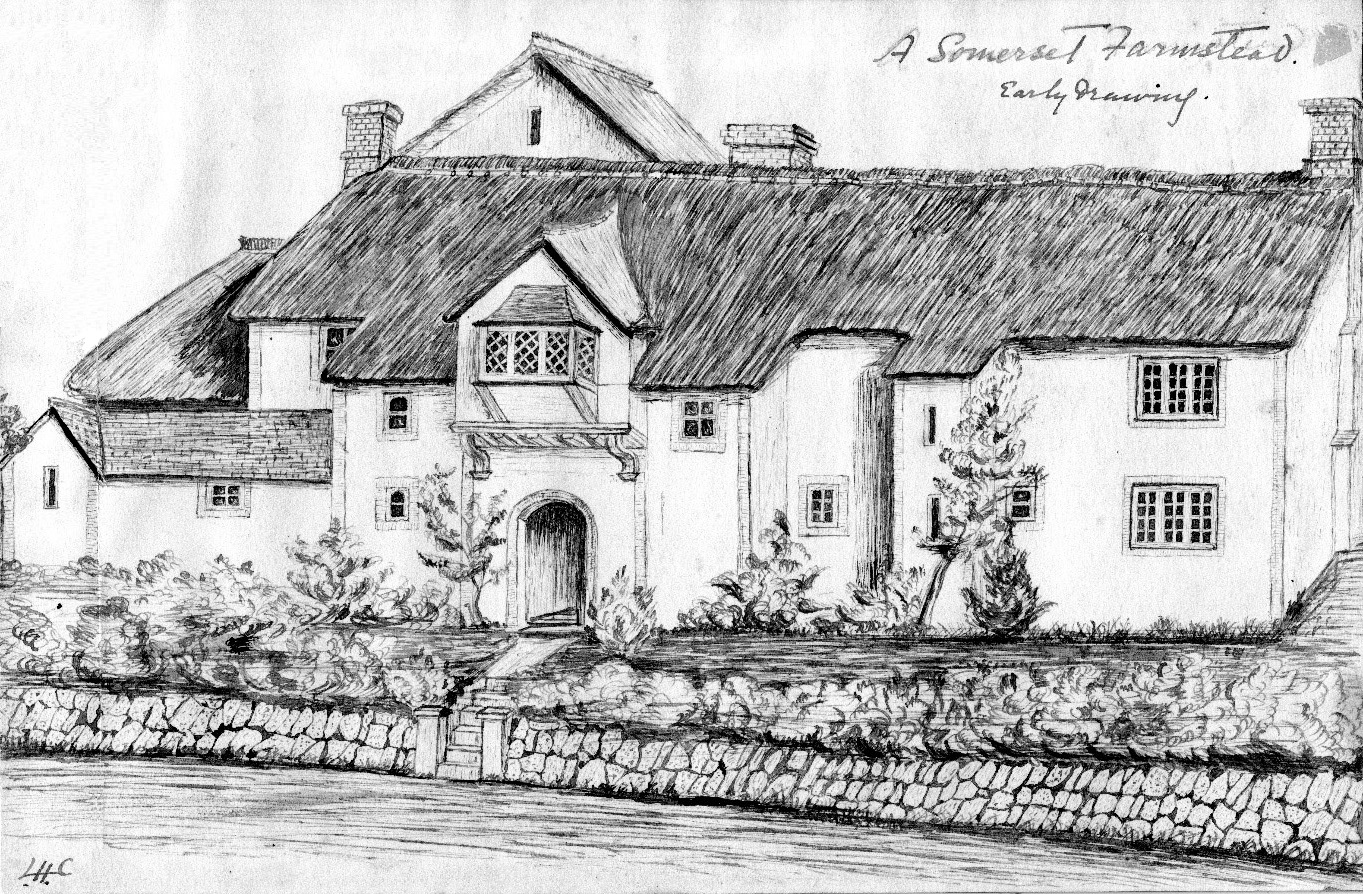 A Somerset Farmstead.
Early Drawing.
LHC